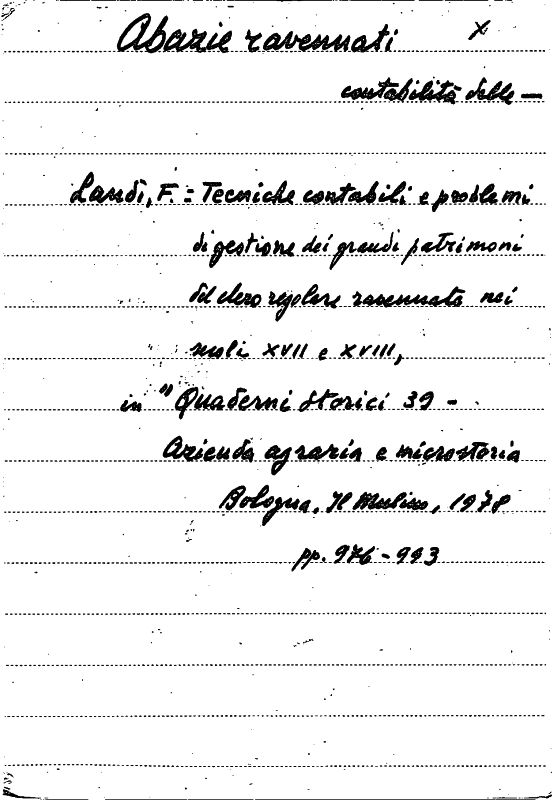 Abazie ravennati x
contabilità delle —
Landi, F. = Tecniche contabili e problemi
di gestione dei grandi patrimoni
del clero regolare ravennate nei
secoli XVII e XVIII,
in "Quaderni storici 39 -
Azienda agraria e microstoria
Bologna, Il Mulino, 1978
pp. 976 - 993